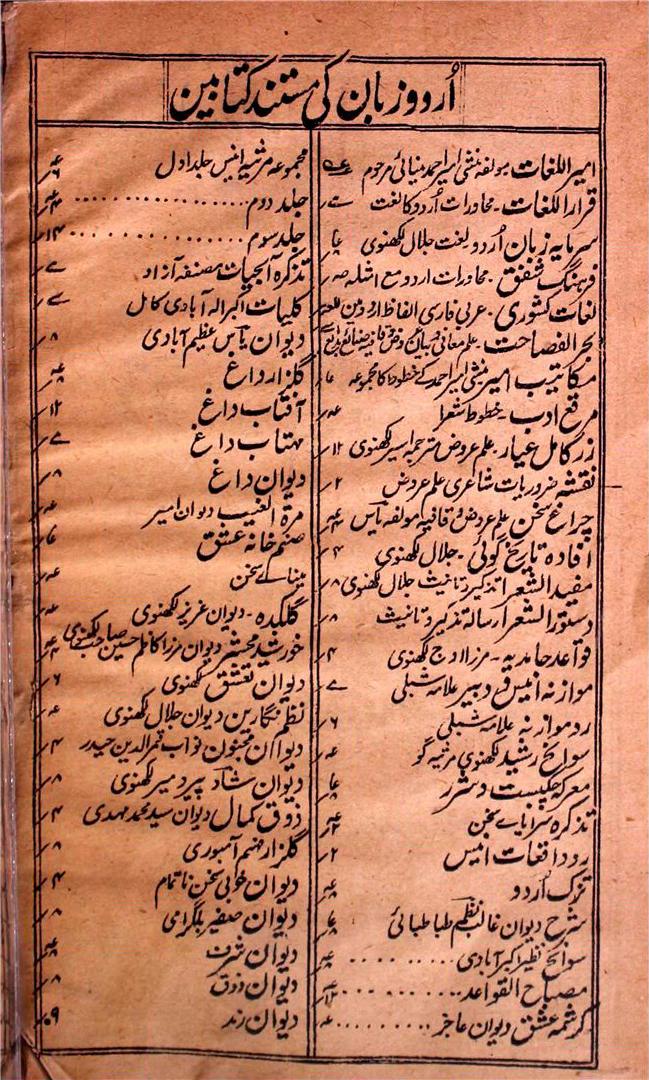 اُردو زبان کی مستند کتابین
امیر اللغات مولفہ منشی امیر احمد مینائی مرحوم
قرار اللغات۔ محاورات اُردو کا لغت
سرمایہ زبان اُردو لغت جلال لکھنوی
فرہنگ شفق۔ محاورات اردو مع امثلہ
لغات کشوری۔ عربی فارسی الفاظ اردو مین
بحر الفصاحت۔ علم معانی و بیان
مکاتیب امیر منشی امیر احمد کے خطوط کا مجموعہ
مرقع ادب۔ خطوط شعرا
زر کامل عیار۔ علم عروض مترجمہ اسیر لکھنوی ۱۲؍
نقشہ ضروریات شاعری علم عروض ۲؍
چراغ سخن علم عروض و قافیہ مولفہ یاس
افادہ تاریخ گوئی۔ جلال لکھنوی ۴؍
مفید الشعرا تذکیر و تانیث جلال لکھنوی ۸؍
دستور الشعرا رسالہ تذکیر و تانیث ۸؍
قواعد حامدیہ۔ مرزا اوج لکھنوی ۴؍
موازنہ انیس و دبیر علامہ شبلی
رد موازنہ علامہ شبلی ۶؍
سوانح رشید لکھنوی مرثیہ گو
معرکہ چکبست و شرر
تذکرہ سراپاے سخن
رد واقعات انیس ۲؍
تزک اُردو
شرح دیوان غالب نظم طباطبائی
سوانح نظیر اکبر آبادی
مصباح القواعد
کرشمہ عشق دیوان عاجز
مجموعہ مرثیہ انیس جلد اول
جلد دوم
جلد سوم
تذکرہ آبحیات مصنفہ آزاد
کلیات اکبر الہ آبادی کامل
دیوان یاس عظیم آبادی ۸؍
گلزار داغ
آفتاب داغ ۱۲؍
مہتاب داغ
دیوان داغ ۸؍
مرۃ الغیب دیوان امیر
صنم خانہ عشق
مینائے سخن
گلکدہ۔ دیوان عزیز لکھنوی
خورشید محشر دیوان مرزا کاظم حسین صاحب لکھنوی
دیوان تعشق لکھنوی ۶؍
نظم نگارین دیوان جلال لکھنوی
دیوان مجنون نواب قمر الدین حیدر ۴؍
دیوان شاد پیرو میر لکھنوی ۸؍
ذوق کمال دیوان سید محمد مہدی ۴؍
گلزار ۸؍
دیوان خوبی سخن ناتمام ۴؍
دیوان صفیر بلگرامی ۸؍
دیوان شرف
دیوان ذوق ۸؍
دیوان رند ۹؍